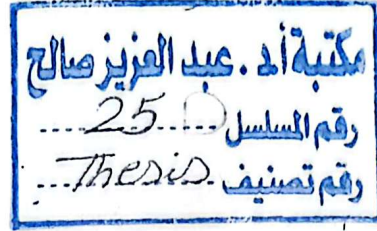 مكتبة أ.د. عبد العزيز صالح
رقم المسلسل ....25....
رقم تصنيف ..Thesis..